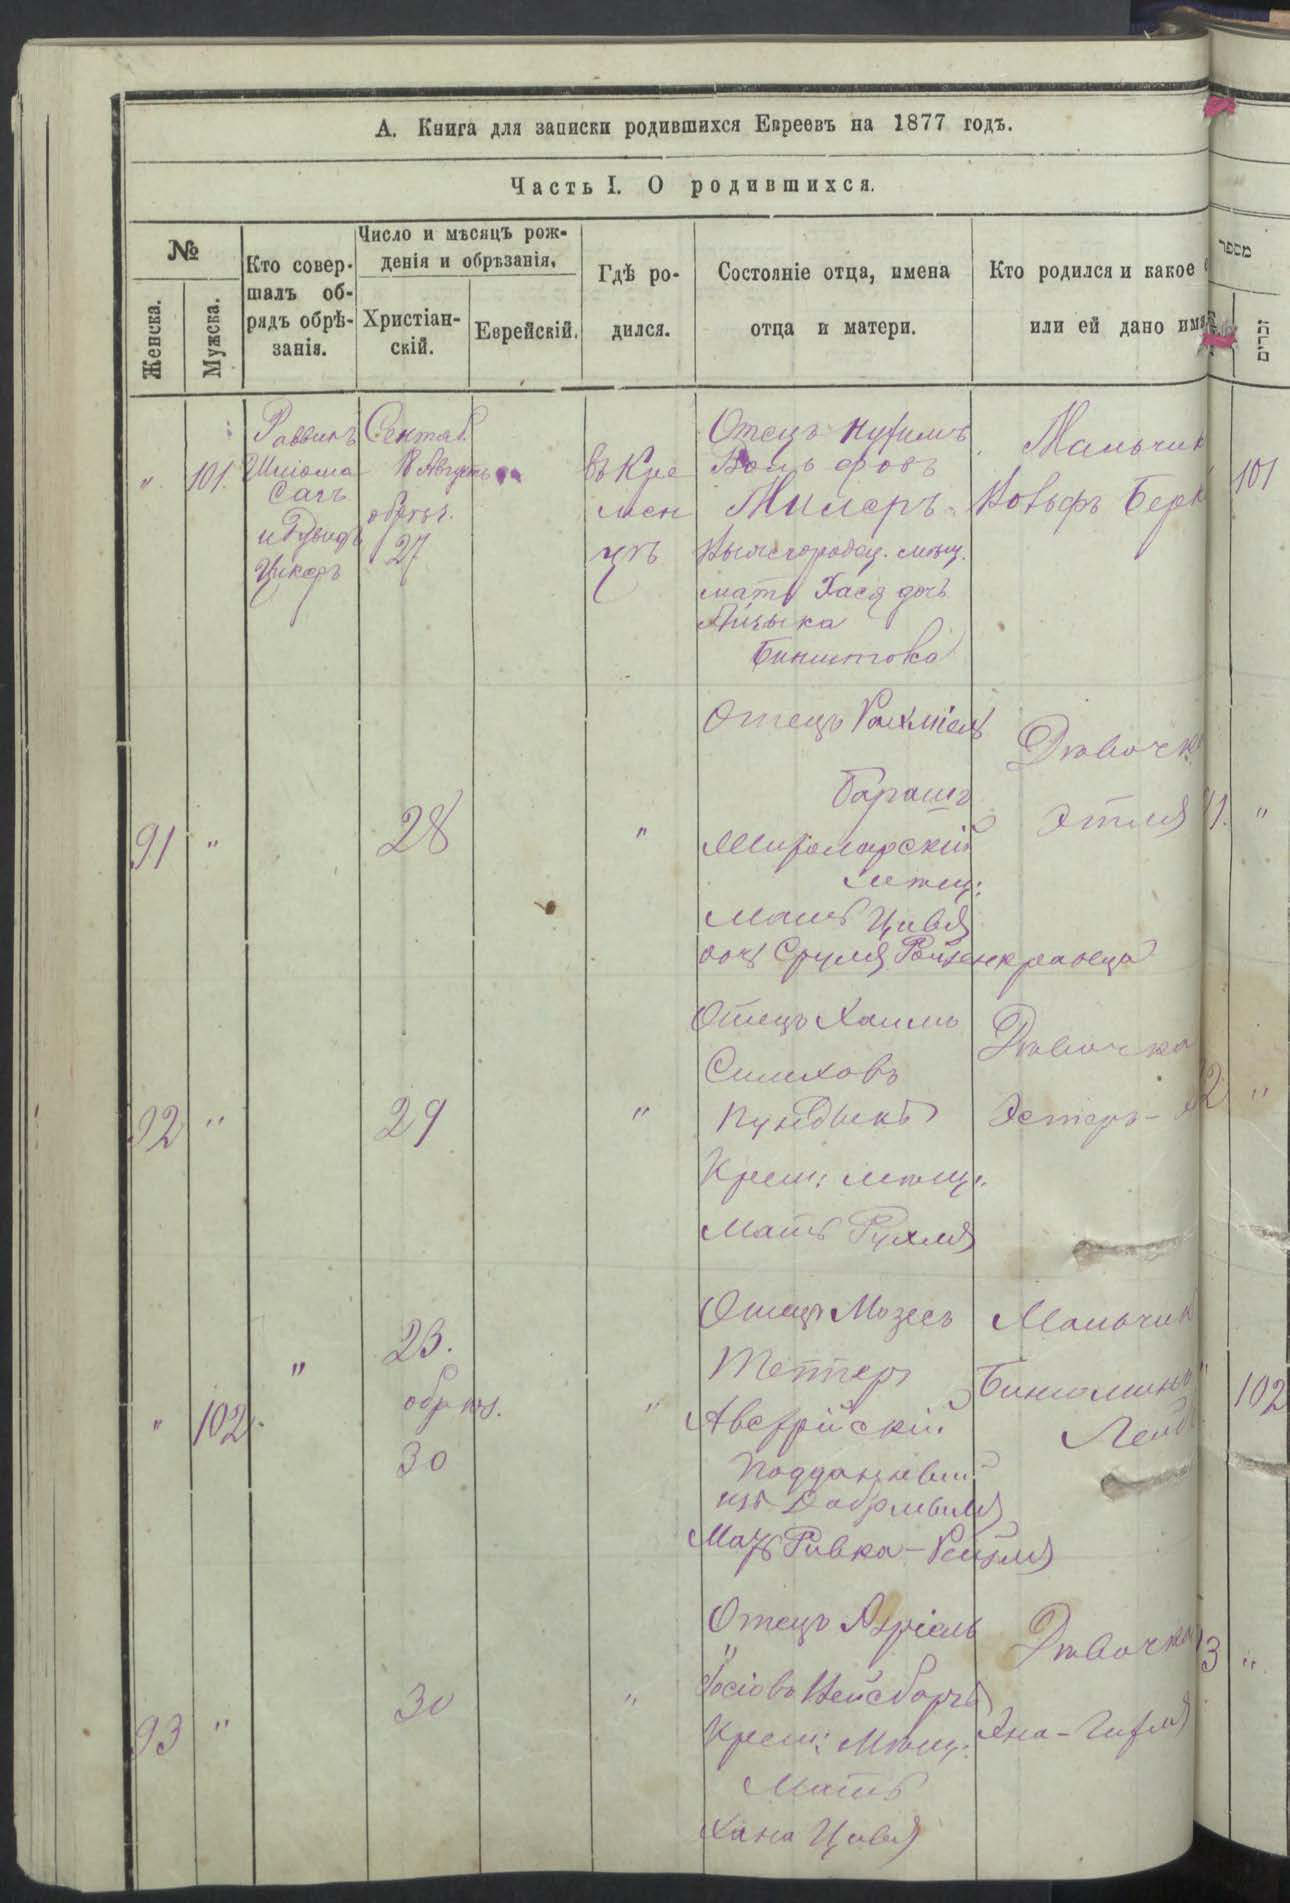 А. Книга для записки родившихся Евреевъ на 1877 годъ.
Часть I. О родившихся.
№
Женска.
Мужска.
Кто совер-
шалъ об-
рядъ обрѣ-
занія.
Число и мѣсяцъ рож-
денія и обрѣзанія,
Христіан-
скій.
Еврейскій.
Гдѣ ро-
дился.
Состояніе отца, имена
отца и матери.
Кто родился и какое
или ей дано имя
מספר
זכרים
" 101.
Раввинъ
Шліома
Сагъ
Сентяб.
обрѣз.
27
въ Кре
мен
цѣ
Отецъ
Милеръ
мѣщ.
мать Хася дочь
Айзыка
Бинштока
Мальчик
Вольфъ Берк
101
91 "
28
"
Отецъ Рахміель
Барашъ
мѣщ:
Мать Цивья
доч Сруля Розенкранца
Дѣвочк
Этля
"
92 "
29
"
Отецъ Хаимъ
Симховъ
Пундыкъ
Крем: мѣщ:
Мать Рухля
Дѣвочка
Эстеръ-
2 "
" 102.
"
23.
обрѣз.
30
"
Отецъ Мозесъ
Теттеръ
Австрійскій
Подданный
изъ
Мать Ривка-Рейзля
Мальчик
Биньоминъ
Лейб
102
93 "
30
"
Отецъ Азріель
Іосіовъ Вейсбергъ
Крем: Мѣщ:
Мать
Хана Цивья
Дѣвочка
3 "